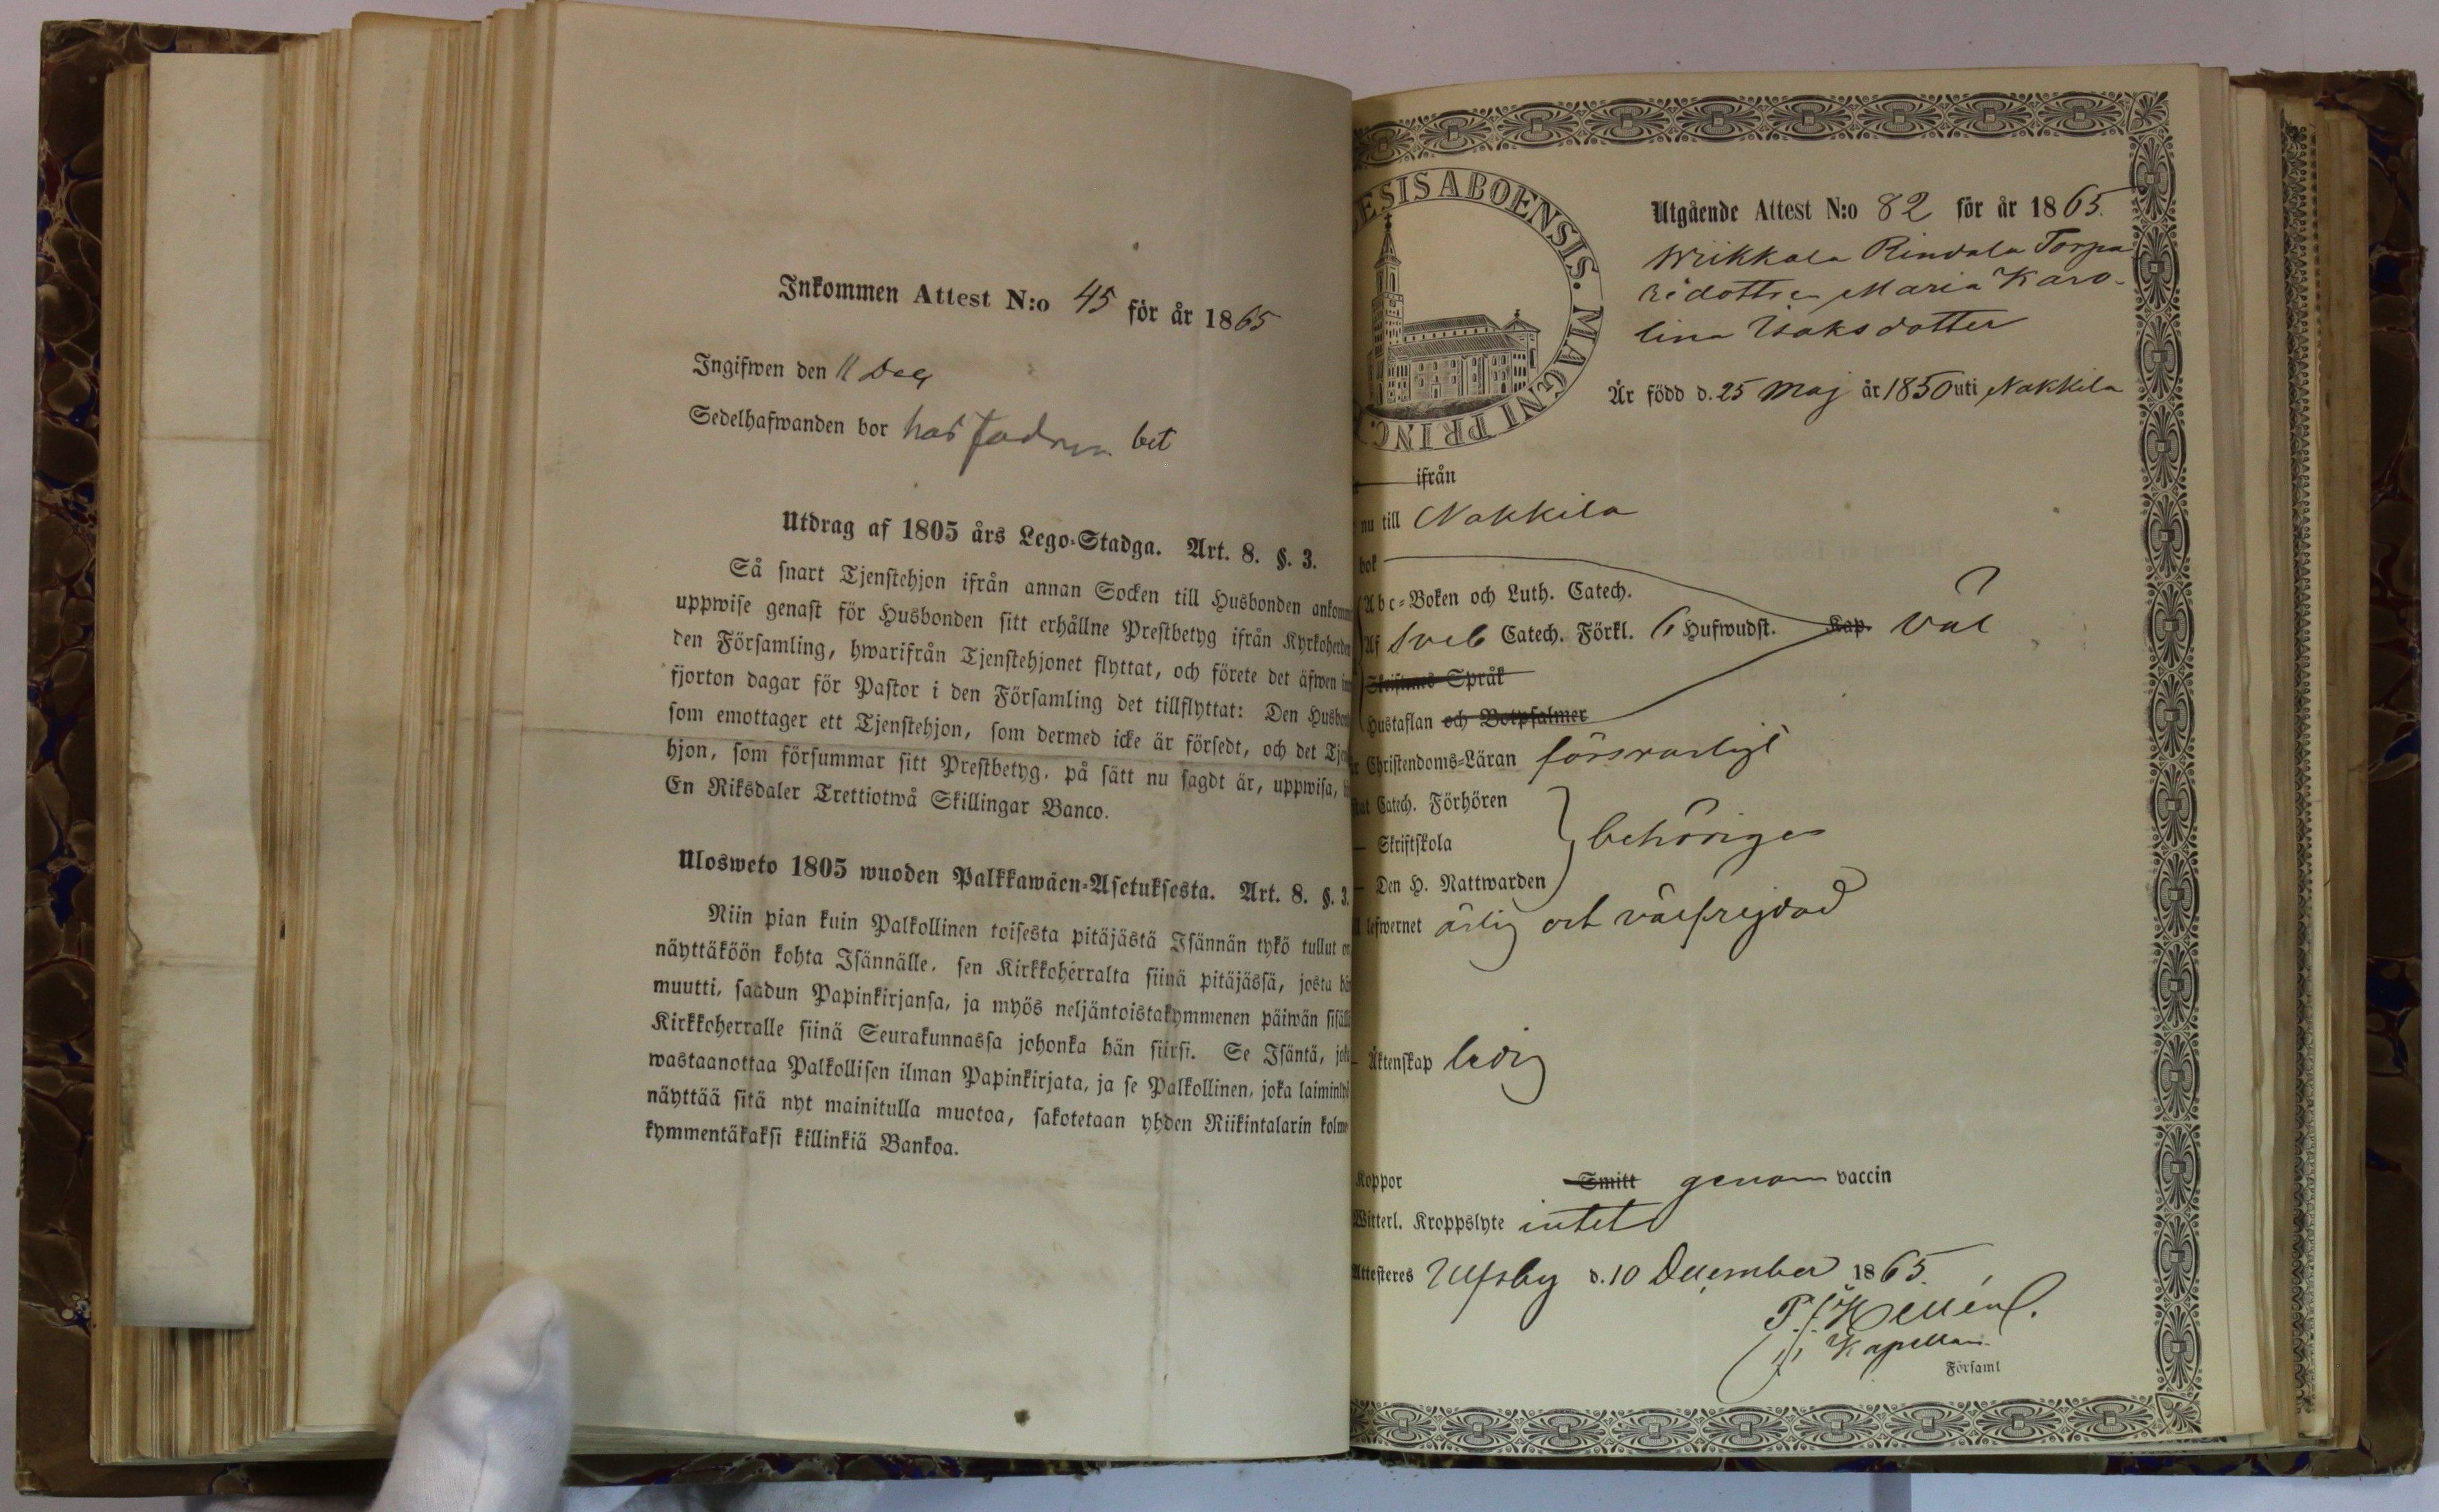 Inkommen Attest N:o 45 för år 1865
Ingifwen den 11 Dec
Sedelhafwanden bor hos fadren bet
Utdrag af 1805 års Lego-Stadga. Art. 8. §. 3.
Så snart Tjenstehjon ifrån annan Socken till Husbonden ankomm
uppwise genast för Husbonden sitt erhållne Prestbetyg ifrån Kyrkoherden
den Församling, hwarifrån Tjenstehjonet flyttat, och förete det äfwen in
fjorton dagar för Pastor i den Församling det tillflyttat: Den Husbon
som emottager ett Tjenstehjon, som dermed icke är försedt, och det Tjen
hjon, som försummar sitt Prestbetyg, på sätt nu sagdt är, uppwisa,
En Riksdaler Trettiotwå Skillingar Banco.
Ulosweto 1805 wuoden Palkkawäen-Asetuksesta. Art. 8. §. 3.
Niin pian kuin Palkollinen toisesta pitäjästä Isännän tykö tullut on
näyttäköön kohta Isännälle, sen Kirkkoherralta siinä pitäjässä, josta hän
muutti, saadun Papinkirjansa, ja myös neljäntoistakymmenen päiwän sisällä
Kirkkoherralle siinä Seurakunnassa johonka hän siirsi. Se Isäntä, joka
wastaanottaa Palkollisen ilman Papinkirjata, ja se Palkollinen, joka laiminlyö
näyttää sitä nyt mainitulla muotoa, sakotetaan yhden Riikintalarin kolme
kymmentäkaksi killinkiä Bankoa.
ESIS ABOENSIS. MAGNI PRINC.
Utgående Attest N:o 82 för år 1865.
Wiikkala Rindala Torpa
redottren Maria Karo-
lina Isaksdotter
Är född d. 25 Maj år 1850 uti Nakkila
ifrån
nu till Nakkila
bok
Abc-Boken och Luth. Catech.
Af Sveb Catech. Förkl. 6 Hufwudst. Kap. väl
Skriftenes Språk
Hustaflan och Botpsalmer
Christendoms-Läran försvarligt
Catech. Förhören
Skriftskola
behörigen
Den H. Nattwarden
lefwernet ärlig och välfrejdad
Äktenskap ledig
Koppor Smitt genom vaccin
Witterl. Kroppslyte intet
Attesteres Ulfsby d. 10 December 1865.
Hellén
Kapellan
Församl